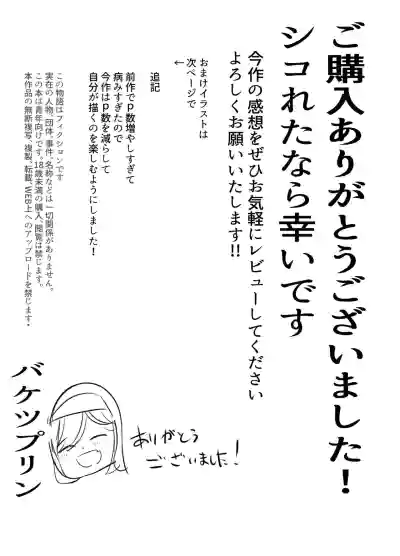 ご購入ありがとうございました!
シコれたなら幸いです
今作の感想をぜひお気軽にレビューしてください
よろしくお願いいたします!!
おまけイラストは
次ページで
↓
追記
前作でP数増やしすぎて
病みすぎたので
今作はP数を減らして
自分が描くのを楽しむようにしました!
この物語はフィクションです
実在の人物、団体、事件、名称などは一切関係がありません。
この本は青年向けです。18歳未満の購入、閲覧は禁じます。
本作品の無断複写、複製、転載、WEB上へのアップロードを禁じます。
ありがとう
ございました!
バケツプリン